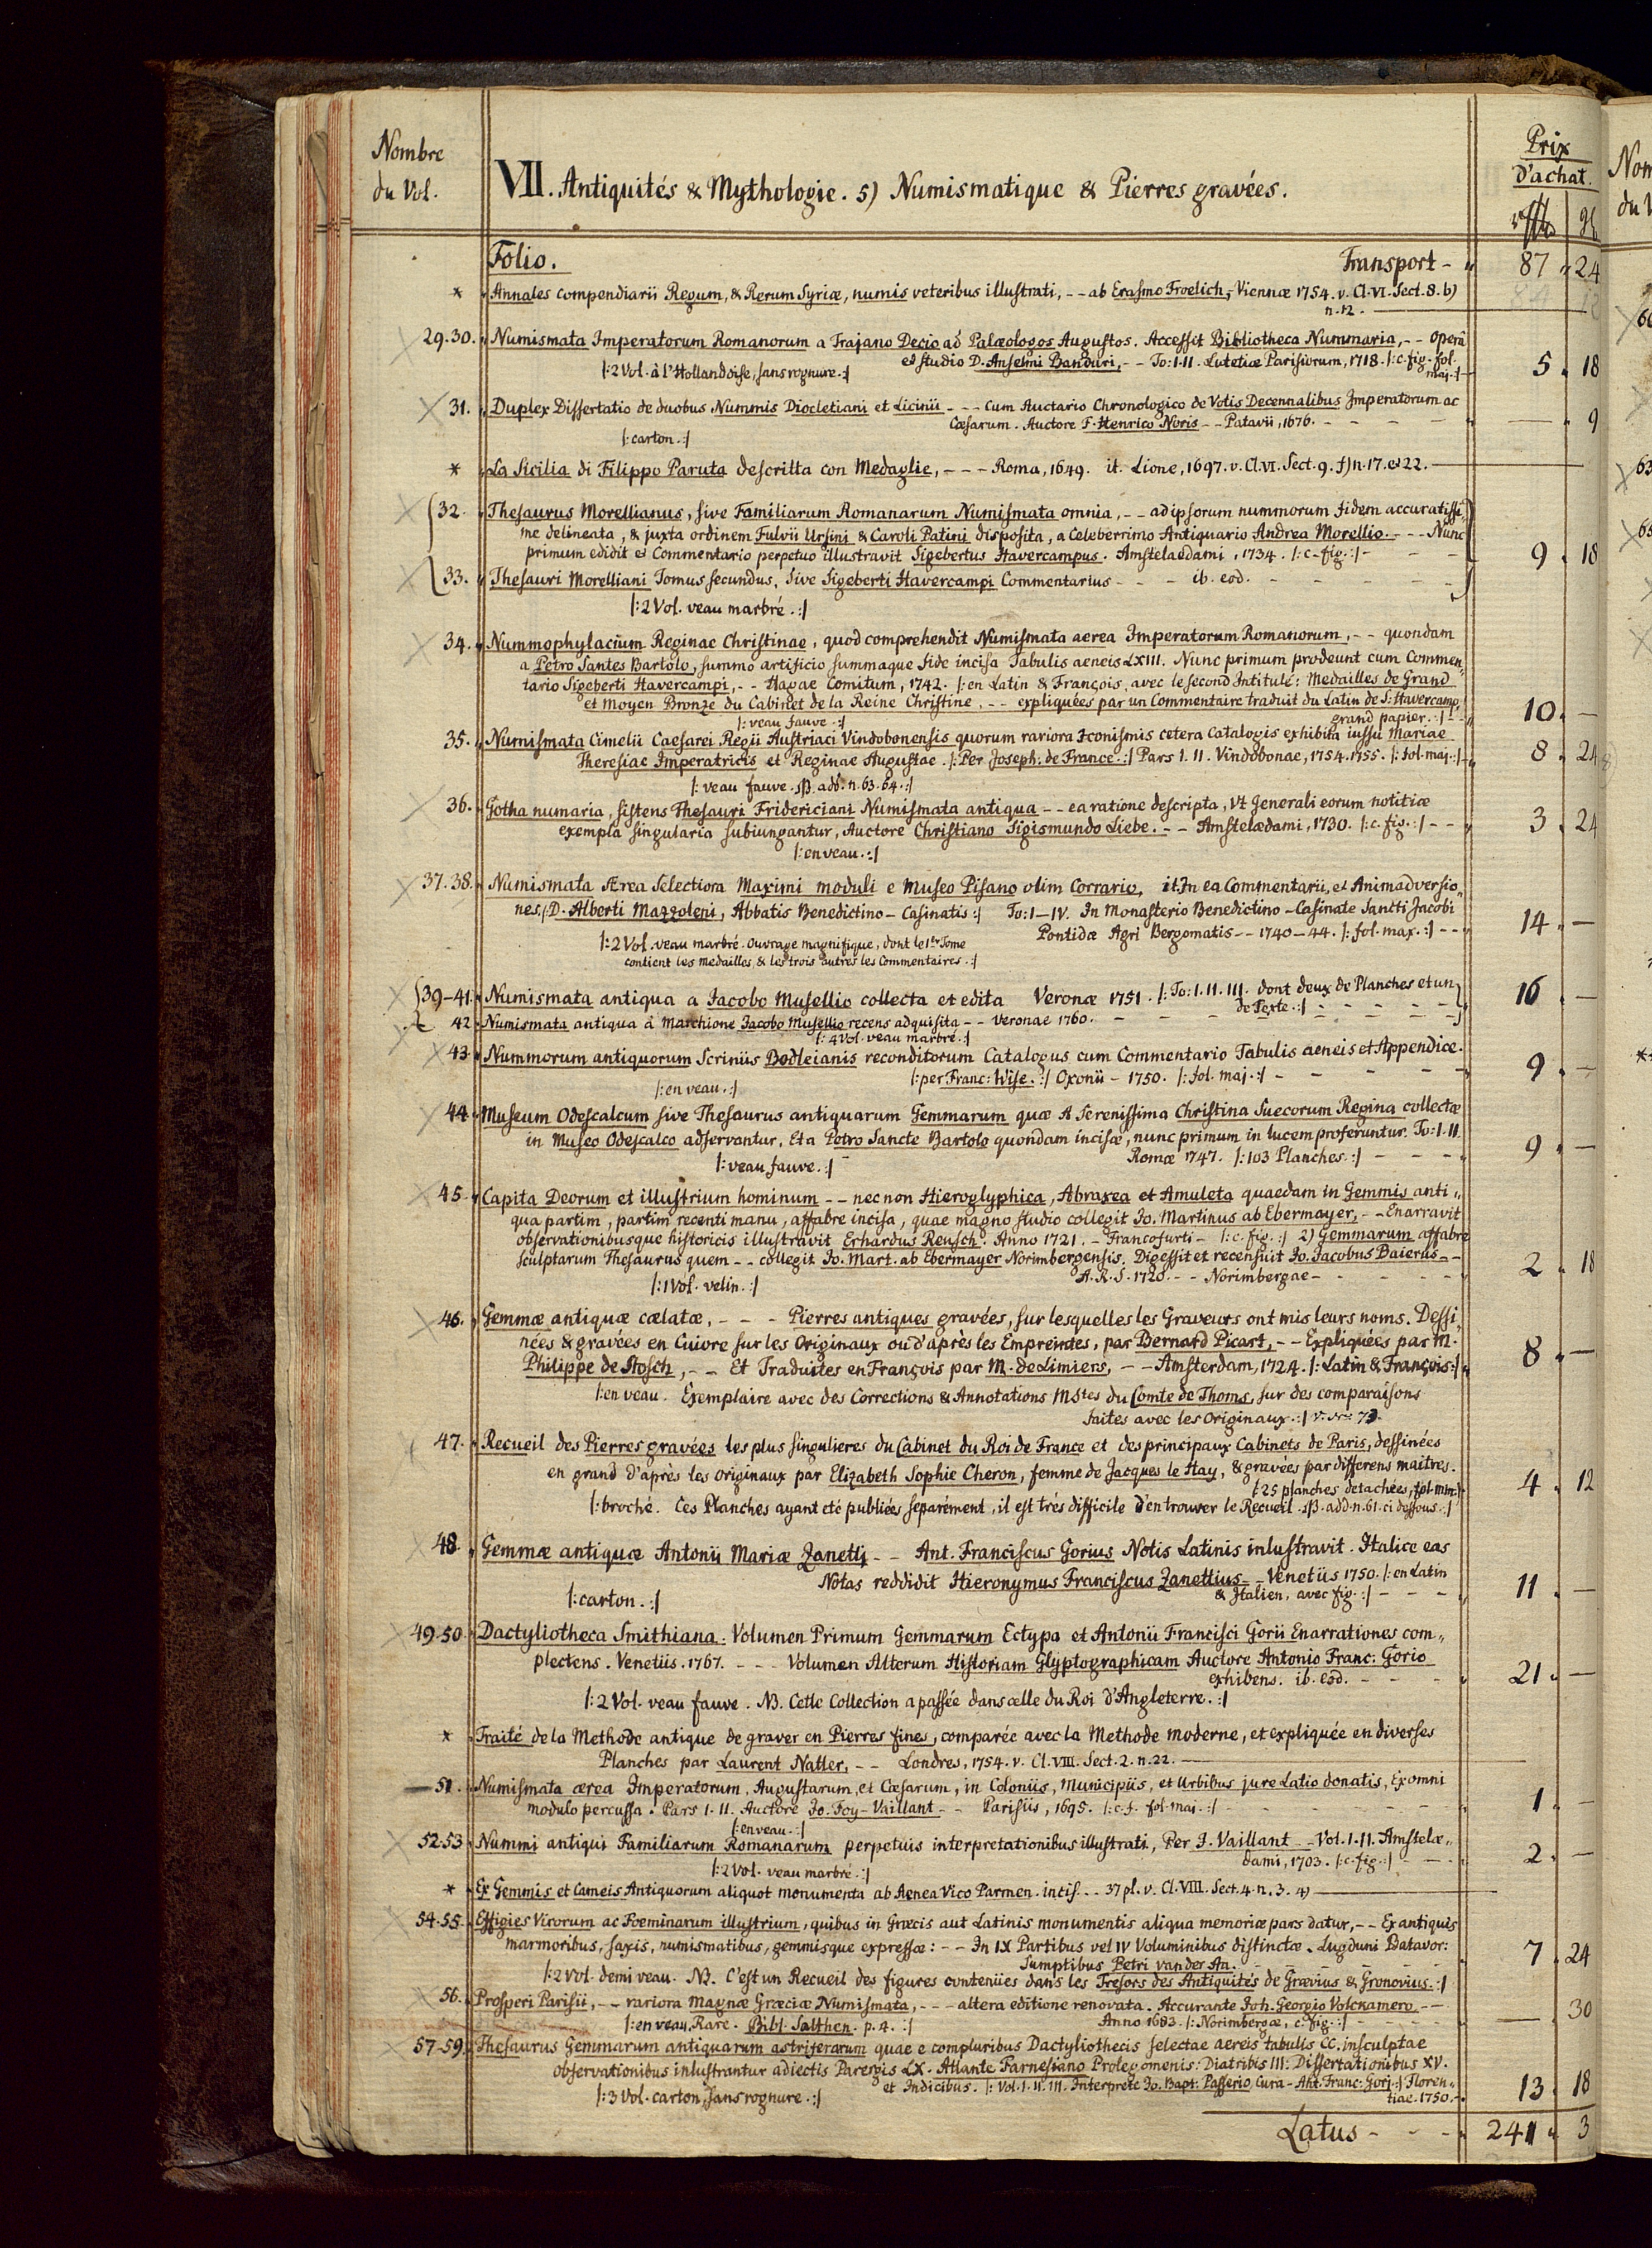 Nombre
du Vol.
VII. Antiquités & Mythologie. 5) Numismatique & Pierres gravées.
Prix
d'achat.
Folio. Transport - 87 24
* Annales compendiarii Regum, & Rerum Syriæ, numis veteribus illustrati, -- ab Erasmo Froelich, Viennæ 1754. v. Cl. VI. Sect. 8. b)
n. 12.
29.30. Numismata Imperatorum Romanorum a Trajano Decio ad Palæologos Augustos. Accessit Bibliotheca Nummaria, -- Operâ
et studio D. Anselmi Banduri, -- To: I.II. Lutetiæ Parisiorum, 1718. |: c. fig. fol.
|: 2 Vol. à l'Hollandoise, sans rognure. :| maj. :| 5 18
31. Duplex Dissertatio de duobus Nummis Diocletiani et Licinii - - - Cum Auctario Chronologico de Votis Decennalibus Imperatorum ac
Cæsarum. Auctore F. Henrico Noris -- Patavii, 1676. - - - - — 9
|: carton. :|
* La Sicilia di Filippo Paruta descritta con Medaglie, - - - Roma, 1649. it. Lione, 1697. v. Cl. VI. Sect. 9. f) n. 17. et 22.
32. Thesaurus Morellianus, sive Familiarum Romanarum Numismata omnia, -- ad ipsorum nummorum fidem accuratissi-
me delineata, & juxta ordinem Fulvii Ursini & Caroli Patini disposita, a Celeberrimo Antiquario Andrea Morellio. - - - Nunc
primum edidit et Commentario perpetuo illustravit Sigebertus Havercampus. Amstelaedami, 1734. |: c. fig. :| - - - 9 18
33. Thesauri Morelliani Tomus secundus, sive Sigeberti Havercampi Commentarius - - - ib. eod. - - - -
|: 2 Vol. veau marbré. :|
34. Nummophylacium Reginae Christinae, quod comprehendit Numismata aerea Imperatorum Romanorum, -- quondam
a Petro Santes Bartolo, summo artificio summaque fide incisa Tabulis aeneis LXIII. Nunc primum prodeunt cum Commen-
tario Sigeberti Havercampi, -- Hagae Comitum, 1742. |: en Latin & François, avec le second Intitulé: Medailles de Grand
et moyen Bronze du Cabinet de la Reine Christine, -- expliquées par un Commentaire traduit du Latin de S. Havercamp,
|: veau fauve. :| grand papier. :| - - 10. —
35. Numismata Cimelii Caesarei Regii Austriaci Vindobonensis quorum rariora Iconismis cetera Catalogis exhibita iussu Mariae
Theresiae Imperatricis et Reginae Augustae. |: Per Joseph. de France. :| Pars I. II. Vindobonae, 1754. 1755. |: fol. maj. :| 8 24
|: veau fauve. add. n. 63. 64. :|
36. Gotha numaria, sistens Thesauri Fridericiani Numismata antiqua -- ea ratione descripta, Vt generali eorum notitiæ
exempla singularia subiungantur, Auctore Christiano Sigismundo Liebe. -- Amstelædami, 1730. |: c. fig. :| - - 3 24
|: en veau. :|
37.38. Numismata Ærea Selectiora Maximi moduli e Museo Pisano olim Corrario, it. In ea Commentarii, et Animadversio-
nes, |: D. Alberti Mazzoleni, Abbatis Benedictino-Casinatis :| To: I-IV. In Monasterio Benedictino-Casinate Sancti Jacobi
Pontidæ Agri Bergomatis -- 1740-44. |: fol. max. :| - - 14 —
|: 2 Vol. veau marbré. Ouvrage magnifique, dont le 1er Tome
contient les medailles, & les trois autres les Commentaires. :|
39-41. Numismata antiqua a Jacobo Musellio collecta et edita Veronæ 1751. |: To: I. II. III. dont deux de Planches et un
de Texte. :| - - - - 16 —
42. Numismata antiqua à Marchione Jacobo Musellio recens adquisita -- Veronae 1760. - - - -
|: 4 Vol. veau marbré. :|
43. Nummorum antiquorum Scriniis Bodleianis reconditorum Catalogus cum Commentario Tabulis aeneis et Appendice.
|: per Franc: Wise. :| Oxonii - 1750. |: fol. maj. :| - - - - 9 —
|: en veau. :|
44. Museum Odescalcum sive Thesaurus antiquarum Gemmarum quæ A Serenissima Christina Suecorum Regina collectæ
in Museo Odescalco adservantur, Et a Petro Sancte Bartolo quondam incisæ, nunc primum in lucem proferuntur. To: I. II.
Romæ 1747. |: 103 Planches. :| - - - 9 —
|: veau fauve. :|
45. Capita Deorum et illustrium hominum -- nec non Hieroglyphica, Abraxea et Amuleta quaedam in Gemmis anti-
qua partim, partim recenti manu, affabre incisa, quae magno studio collegit Jo. Martinus ab Ebermayer, -- Enarravit
observationibusque historicis illustravit Erhardus Reusch. Anno 1721. - Francofurti - |: c. fig. :| 2) Gemmarum affabre
sculptarum Thesaurus quem -- collegit Jo. Mart. ab Ebermayer Norimbergensis. Digessit et recensuit Jo. Jacobus Baierus --
A. R. S. 1720. -- Norimbergae - - - - 2 18
|: 1 Vol. velin. :|
46. Gemmæ antiquæ cælatæ, - - - Pierres antiques gravées, sur lesquelles les Graveurs ont mis leurs noms. Dessi-
nées & gravées en Cuivre sur les Originaux ou d'après les Empreintes, par Bernard Picart, -- Expliquées par M.
Philippe de Stosch, -- Et Traduites en François par M. de Limiers, -- Amsterdam, 1724. |: Latin & François :| 8 —
|: en veau. Exemplaire avec des Corrections & Annotations Mstes du Comte de Thoms, sur des comparaisons
faites avec les Originaux. :| v. 73.
47. Recueil des Pierres gravées les plus singulieres du Cabinet du Roi de France et des principaux Cabinets de Paris, dessinées
en grand d'après les originaux par Elizabeth Sophie Cheron, femme de Jacques le Hay, & gravées par differens maitres.
|: 25 planches detachées, fol. min. :| 4 12
|: broché. Ces Planches ayant eté publiées separément, il est très difficile d'en trouver le Recueil. add. n. 61. ci dessous. :|
48. Gemmæ antiquæ Antonii Mariæ Zanetti -- Ant. Franciscus Gorius Notis Latinis inlustravit. Italice eas
Notas reddidit Hieronymus Franciscus Zanettius -- Venetiis 1750. |: en Latin
|: carton. :| & Italien, avec fig. :| - - - 11 —
49.50. Dactyliotheca Smithiana: Volumen Primum Gemmarum Ectypa et Antonii Francisci Gorii Enarrationes com-
plectens. Venetiis. 1767. - - - Volumen Alterum Historiam Glyptographicam Auctore Antonio Franc: Gorio
exhibens. ib. eod. - - - 21 —
|: 2 Vol. veau fauve. NB. Cette Collection a passée dans celle du Roi d'Angleterre. :|
* Traité de la Methode antique de graver en Pierres fines, comparée avec la Methode moderne, et expliquée en diverses
Planches par Laurent Natter, -- Londres, 1754. v. Cl. VIII. Sect. 2. n. 22.
51. Numismata ærea Imperatorum, Augustarum, et Cæsarum, in Coloniis, Municipiis, et Urbibus jure Latio donatis, Ex omni
modulo percussa. Pars I. II. Auctore Jo. Foy-Vaillant -- Parisiis, 1695. |: c. f. fol. maj. :| - - - 1 —
|: en veau. :|
52.53. Nummi antiqui Familiarum Romanarum perpetuis interpretationibus illustrati, Per J. Vaillant -- Vol. I. II. Amstelæ-
dami, 1703. |: c. fig. :| - - 2 —
|: 2 Vol. veau marbré. :|
* Ex Gemmis et Cameis Antiquorum aliquot monumenta ab Aenea Vico Parmen. incis. -- 37 pl. v. Cl. VIII. Sect. 4. n. 3. 4)
54.55. Effigies Virorum ac Foeminarum illustrium, quibus in Græcis aut Latinis monumentis aliqua memoriæ pars datur, -- Ex antiquis
marmoribus, saxis, numismatibus, gemmisque expressæ: -- In IX Partibus vel IV Voluminibus distinctæ. Lugduni Batavor:
Sumptibus Petri vander Aa. - - - 7 24
|: 2 Vol. demi veau. NB. C'est un Recueil des figures contenües dans les Tresors des Antiquités de Grævius & Gronovius. :|
56. Prosperi Parisii, -- rariora Magnæ Græciæ Numismata, - - - altera editione renovata. Accurante Joh. Georgio Volckamero --
Anno 1683. |: Norimbergæ, c. fig. :| - - - — 30
|: en veau, Rare. Bibl. Salthen. p. 4. :|
57-59. Thesaurus Gemmarum antiquarum astriferarum quae e compluribus Dactyliothecis selectae aereis tabulis CC. insculptae
observationibus inlustrantur adiectis Parergis LX. Atlante Farnesiano Prolegomenis: Diatribis III: Dissertationibus XV.
et Indicibus. |: Vol. I. II. III. Interprete Jo. Bapt. Passerio, Cura - Ant. Franc: Gorj. :| Floren-
|: 3 Vol. carton, sans rognure. :| tiae. 1750. - 13 18
Latus - - - 241 3
Nom
du V